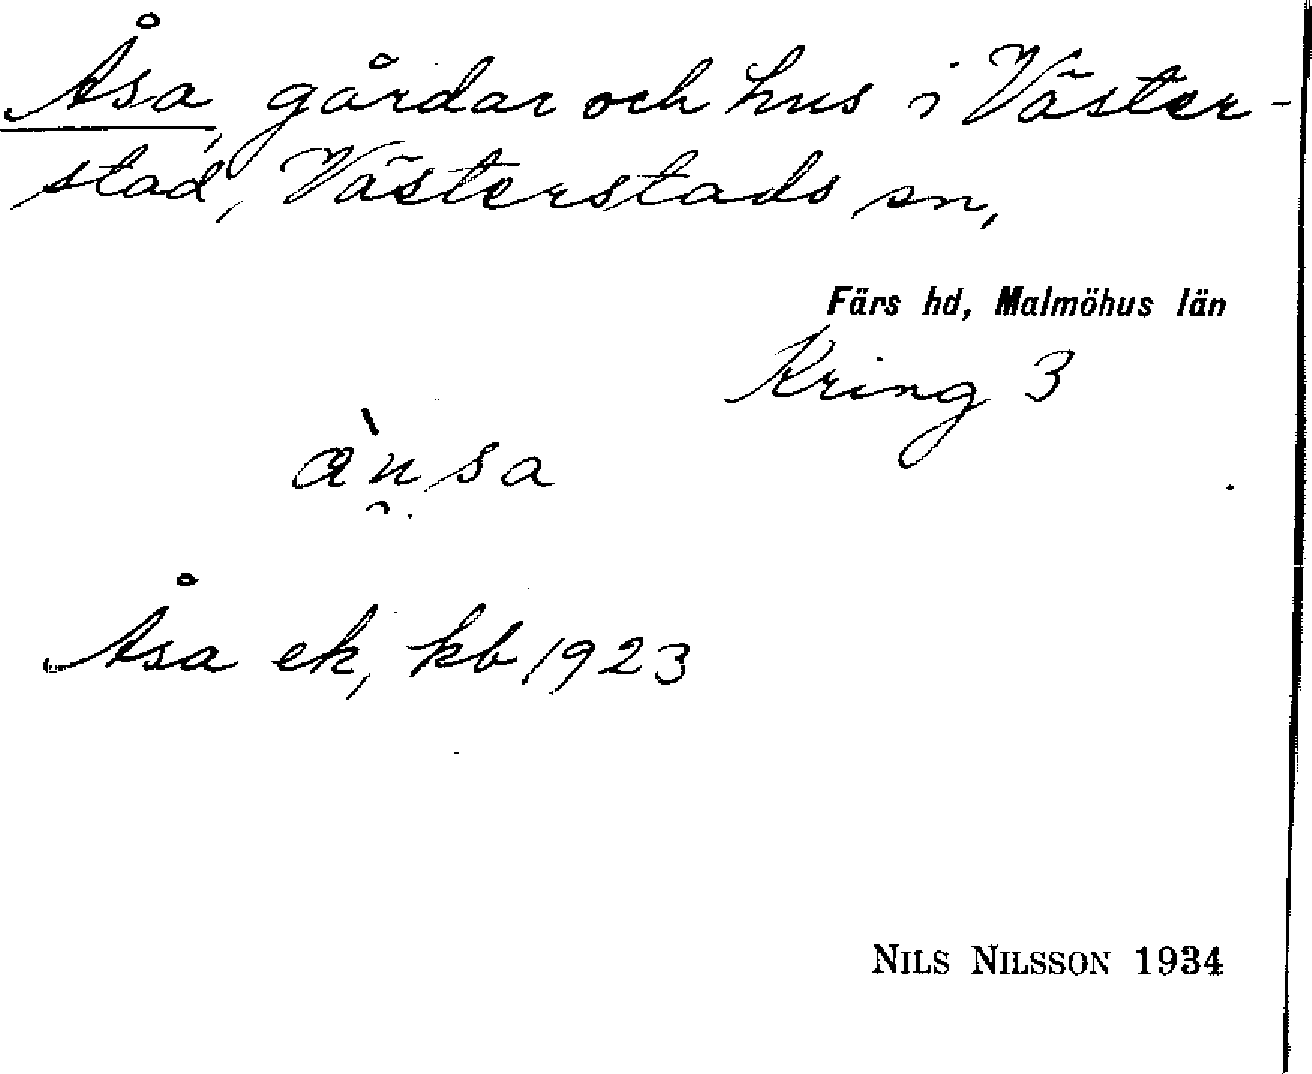 Åsa, gårdar och hus i Väster-
stad, Västerstads sn,
Färs hd, Malmöhus län
Kring 3
Åsa ek, kb 1923
NILS NILSSON 1934